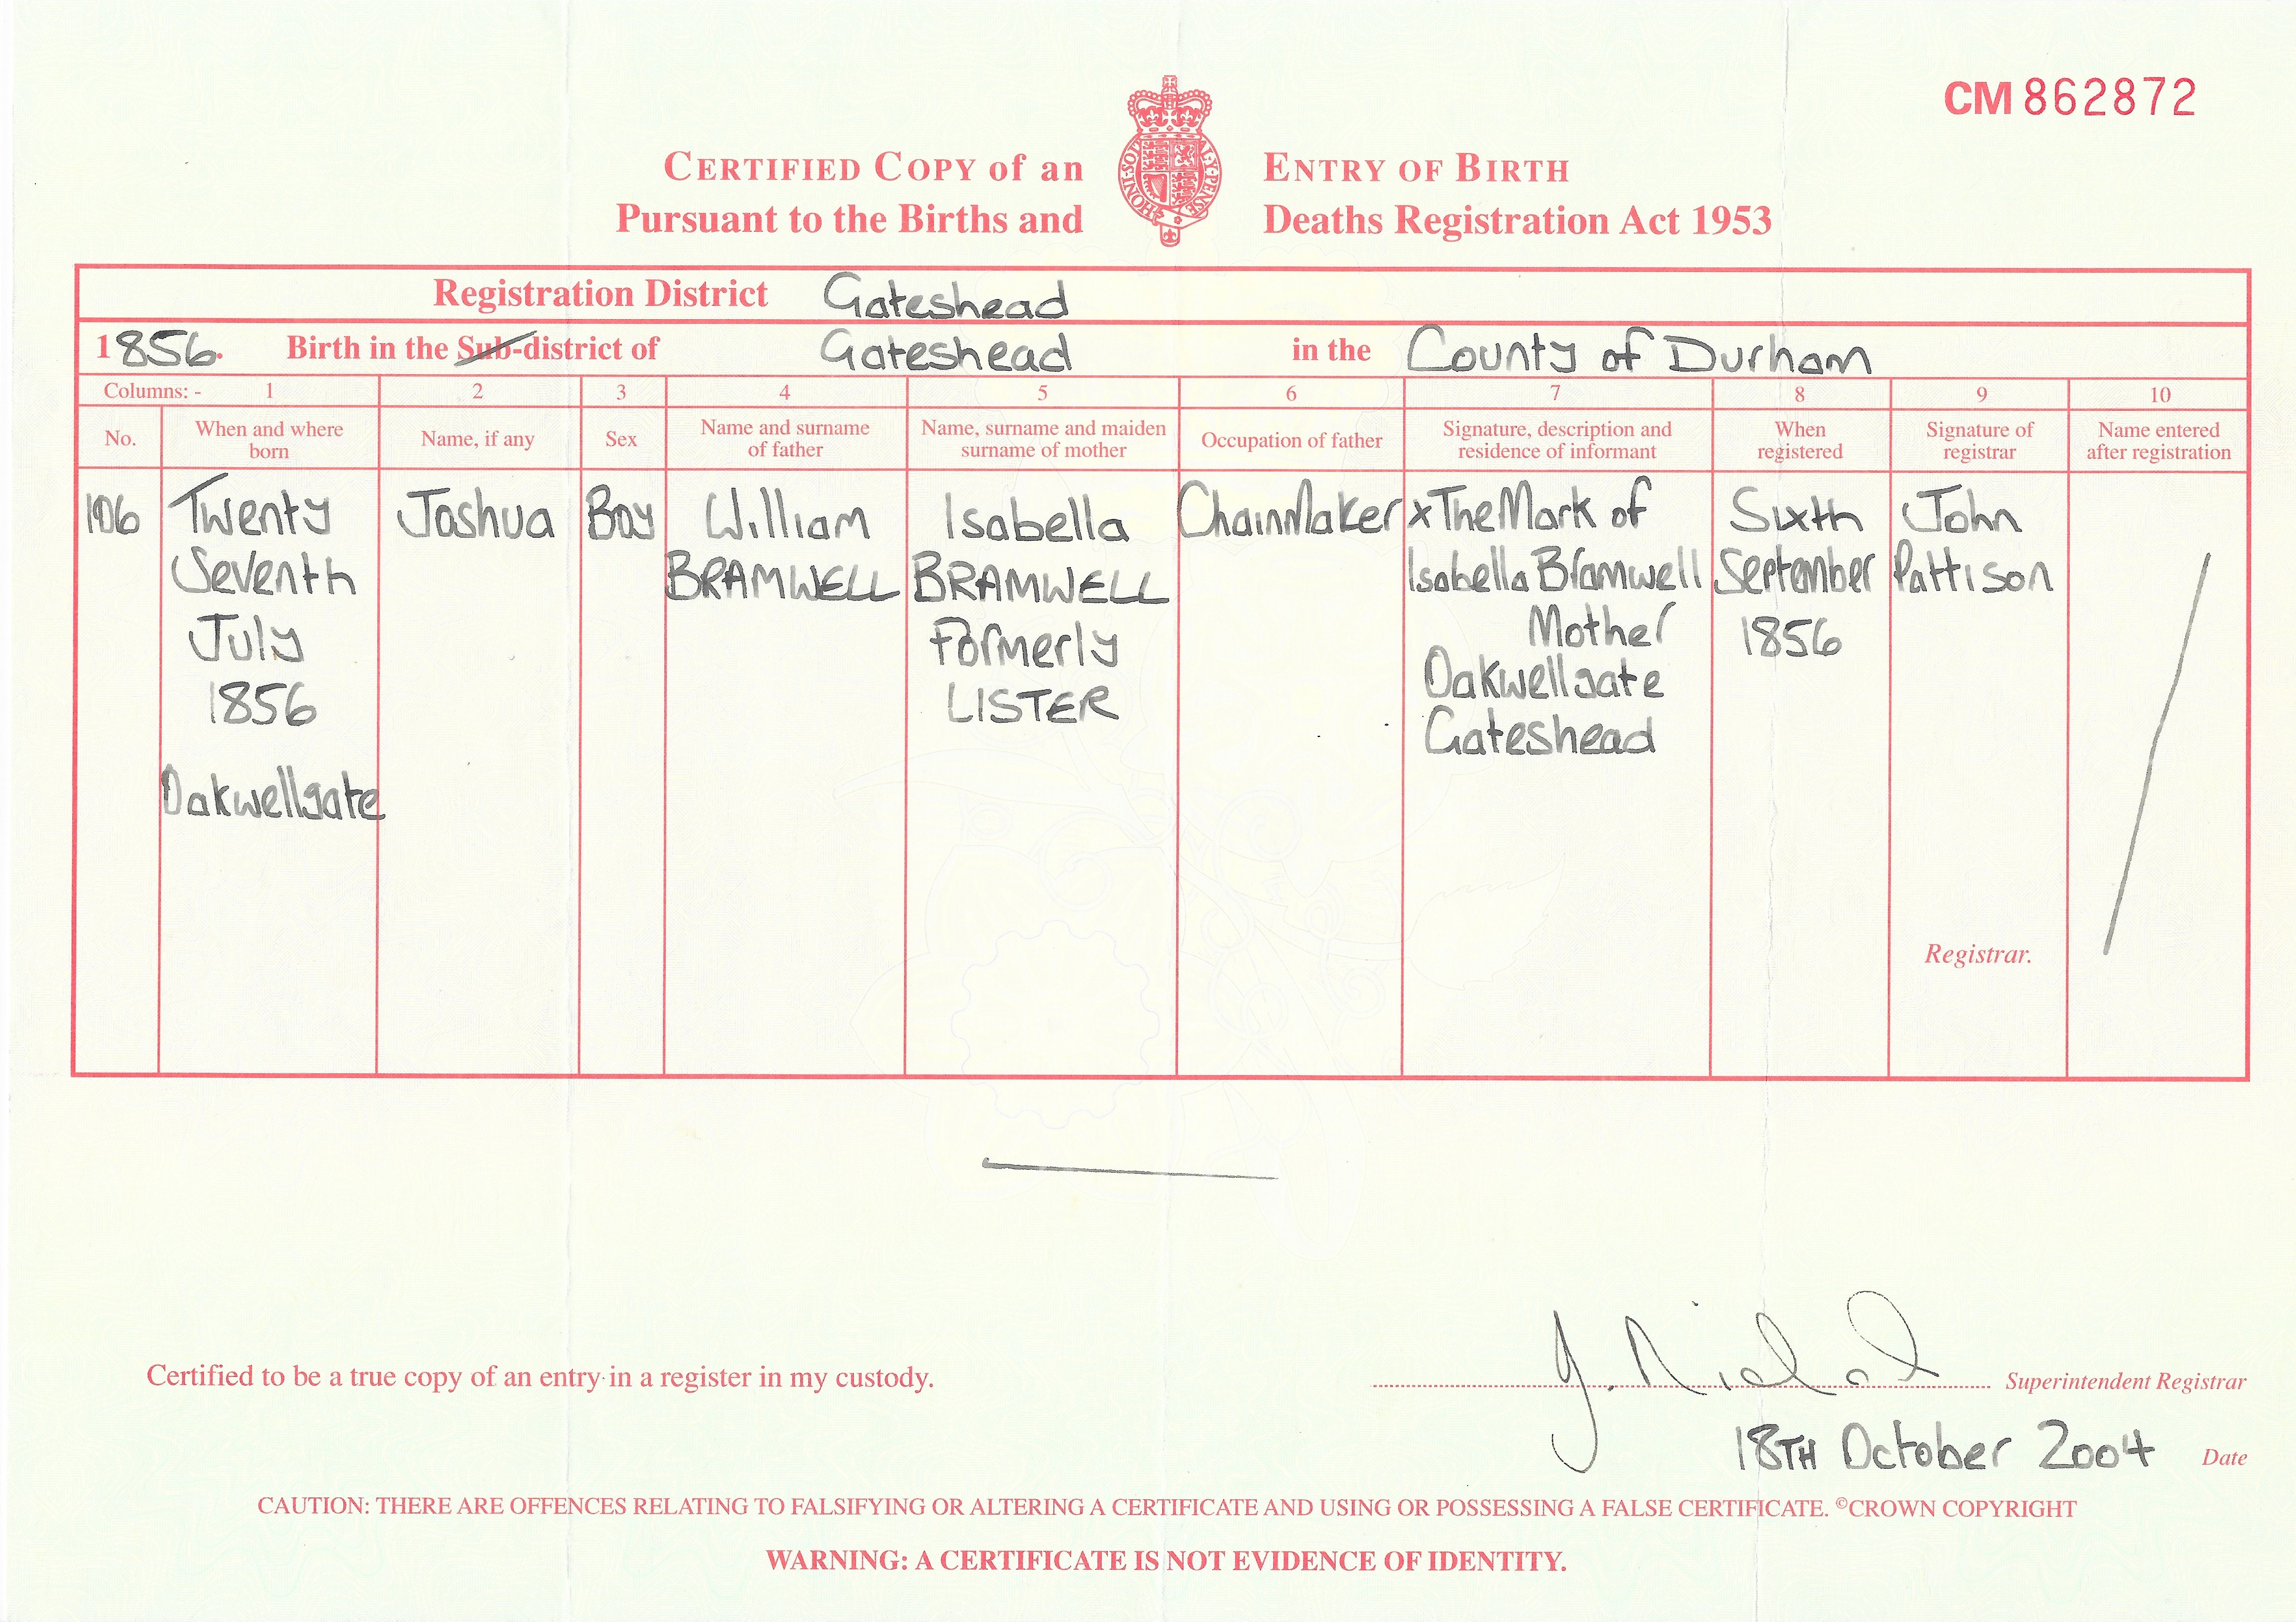 CM 862872
CERTIFIED COPY of an ENTRY OF BIRTH
HONI·SOI AL·Y·PENSE
Pursuant to the Births and Deaths Registration Act 1953
Registration District Gateshead
1856. Birth in the Sub-district of Gateshead in the County of Durham
Columns: - 1 2 3 4 5 6 7 8 9 10
No.
When and where
born
Name, if any
Sex
Name and surname
of father
Name, surname and maiden
surname of mother
Occupation of father
Signature, description and
residence of informant
When
registered
Signature of
registrar
Name entered
after registration
106
Twenty
Seventh
July
1856
Oakwellgate
Joshua
Boy
William
BRAMWELL
Isabella
BRAMWELL
Formerly
LISTER
ChainMaker
x The Mark of
Isabella Bramwell
Mother
Oakwellgate
Gateshead
Sixth
September
1856
John
Pattison
Registrar.
Certified to be a true copy of an entry in a register in my custody.
Superintendent Registrar
18TH October 2004 Date
CAUTION: THERE ARE OFFENCES RELATING TO FALSIFYING OR ALTERING A CERTIFICATE AND USING OR POSSESSING A FALSE CERTIFICATE. ©CROWN COPYRIGHT
WARNING: A CERTIFICATE IS NOT EVIDENCE OF IDENTITY.